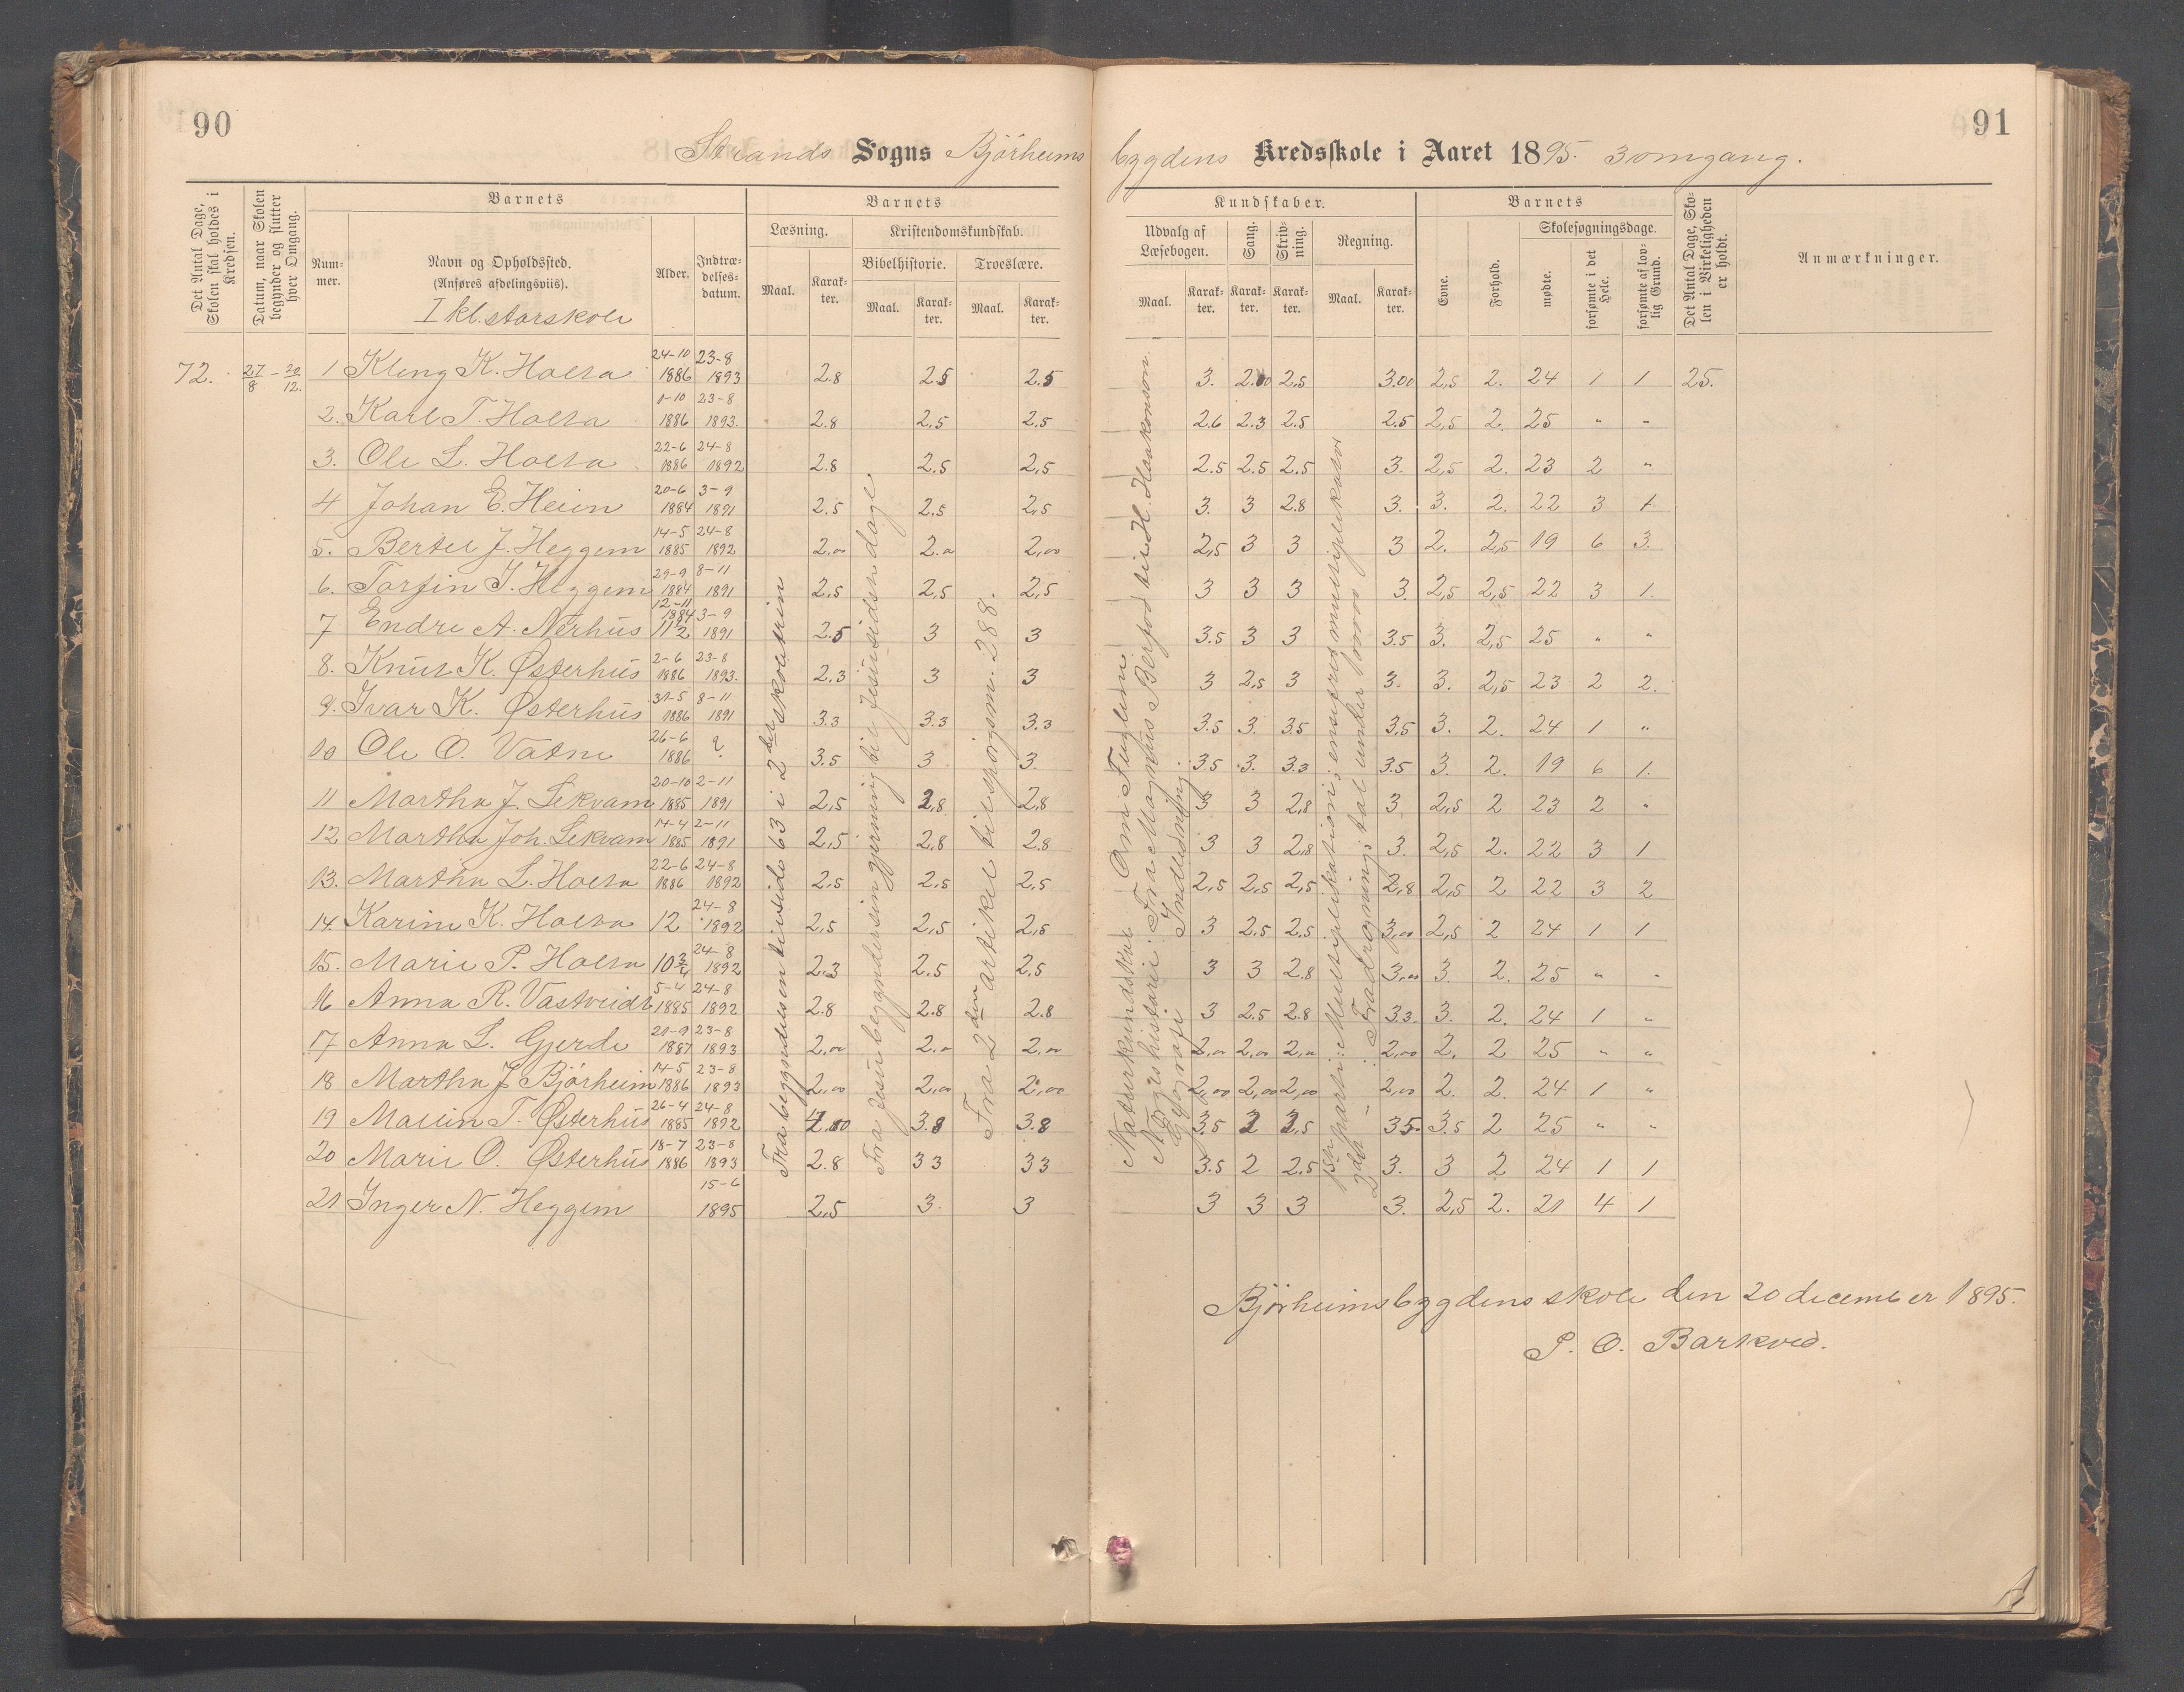 90
91
Strands Sogns Bjørheims bygdens Kredsskole i Aaret 1895. 3 omgang.
Det Antal Dage, Skolen skal holdes i Kredsen.
Datum, naar Skolen begynder og slutter hver Omgang.
Barnets
Nummer.
Navn og Opholdssted.
(Anføres afdelingsviis).
I kl. storskole
Alder.
Indtrædelsesdatum.
Barnets
Læsning.
Maal.
Karakter.
Kristendomskundskab.
Bibelhistorie.
Maal.
Karakter.
Troeslære.
Maal.
Karakter.
Kundskaber.
Udvalg af Læsebogen.
Maal.
Karakter.
Sang.
Karakter.
Skrivning.
Karakter.
Regning.
Maal.
Karakter.
Barnets
Evne.
Forhold.
Skolesøgningsdage.
mødte.
forsømte i det Hele.
forsømte af lovlig Grund.
Det Antal Dage, Skolen i Virkeligheden er holdt.
Anmærkninger.
72. 27/8 – 20/12. 1 Kleng K. Holta 24-10 1886 23-8 1893 2.8 2.5 2.5 3. 2.00 2.5 3.00 2,5 2. 24 1 1 25.
2. Karl T. Holta 1-10 1886 23-8 1893. 2.8 2,5 2,5 2.6 2.3 2.5 2.5 2,5 2. 25 " "
3. Ole L. Holta 22-6 1886 24-8 1892 2.8 2.5 2,5 2.5 2.5 2.5 3. 2,5 2. 23 2 "
4 Johan E. Heim 20-6 1884 3-9 1891 2.5 2.5 2,5 3. 3 2.8 3. 3. 2. 22 3 1
5. Bertel J. Heggem 14-5 1885 24-8 1892 2,00 2.00 2,00 2,5 3 3 3 2. 2,5 19 6 3.
6. Torfin J. Heggem 29-9 1884 8-11 1891 2,5 2,5 2,5 3 3 3 3. 2,5 2,5 22 3 1.
7 Endre A. Nerhus 12-11 1884 11 1/2 3-9 1891 2.5 3 3 3.5 3 3 3.5 3. 2,5 25 " "
8. Knut K. Østerhus 2-6 1886 23-8 1893. 2.3 3 3 3 2,5 3 3. 3. 2,5 23 2 2.
9. Ivar K. Østerhus 31-5 1886 8-11 1891 3.3 3.3 3.3 3.5 3. 3.5 3.5 3. 2. 24 1 "
10 Ole O. Vatne 26-6 1886 ? 3.5 3 3. 3.5 3. 3.3 3.5 3. 2. 19 6 1.
11 Martha J. Lekvam 20-10 1885 2-11 1891 2,5 2,8 2,8 3 3 2,8 3 2,5 2 23 2 "
12 Martha Joh. Lekvam 14-4 1885 2-11 1891 2,5 2.8 2.8 3 3 2,8 3. 2,5 2. 22 3 1
13. Martha L. Holta 22-6 1886 24-8 1892 2,5 2,5 2,5 2,5 2,5 2,5 2,8 2,5 2 22 3 2
14. Karine K. Holta 12 24-8 1892 2,5 2,5 2,5 3 2.5 2.5 3,00 2,5 2 24 1 1
15. Marie P. Holta 10 3/4 24-8 1892 2.3 2.5 2,5 3 3 2.8 3,00 3. 2. 25 " "
16 Anna R. Vastveidt 5-4 1885 24-8 1892 2.8 2.8 2.8 3 2.5 2.8 3.3. 3. 2. 24 1 "
17 Anna L. Gjerde 21-9 1887 23-8 1893 2,00 2,00 2,00 2,00 2,00 2,00 2,00 2. 2 25 " "
18 Martha J. Bjørheim 14-5 1886 23-8 1893 2,00 2,00 2,00 2,00 2,00 2,00 2,00 2. 2. 24 1 "
19 Mallin T. Østerhus 26-4 1885 24-8 1892 4.00 3.8 3.8 3.5 2 2,5 3.5 3.5 2 25 " "
20 Marie O. Østerhus 18-7 1886 23-8 1893 2.8 3 3 3 3 3.5 2 2.5 3. 3 2 24 1 1
21 Inger N. Heggem 15-6 1895 2.5 3. 3 3 3 3 3. 2,5 2. 21 4 1
Fra begyndelsen til side 63 i 2den skoletrin
Fra Jesu begyndelsesin gjerning til Jesu sidste dage.
Fra 2den artikel til spørgsm. 288.
Naturkundskab Om Fuglene.
Norgeshistorie: Fra Magnus Berfod til H. Haakonson.
Geografi Indledning.
1ste parti: Multiplikation; ensifret multiplikator
2det – : Fradragning; tal under 1000
Bjørheimsbygdens skole den 20 december 1895.
P. O. Barkved.